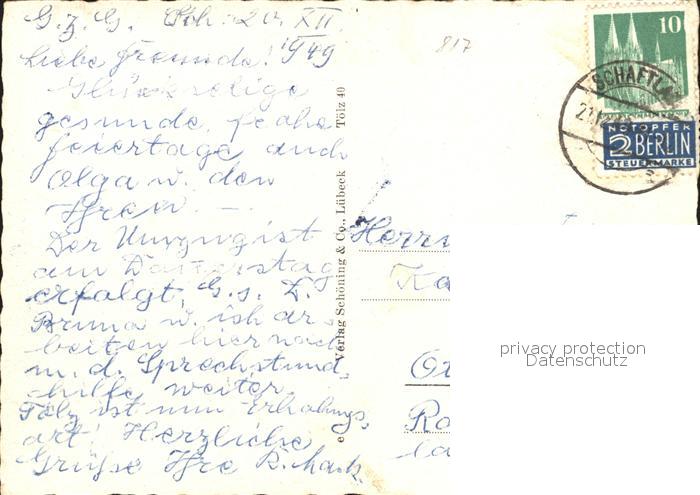 G. z. G. 20. XII.
Liebe Freunde! 1949
Glückselige
gesunde, frohe
Feiertage auch
Olga u. den
Ihren. —
Der Umzug ist
am Donnerstag
erfolgt, G. s. D.
Bruna u. ich ar-
beiten hier noch
m. d. Sprechstund-
hilfe weiter.
Tölz ist nun Erholungs-
ort! Herzliche
Grüße Ihre R.
Verlag Schöning & Co., Lübeck Tölz 40
817
10
SCHAFTLA
NOTOPFER
2 BERLIN
STEUERMARKE
Herrn
Ka
Ro
privacy protection
Datenschutz